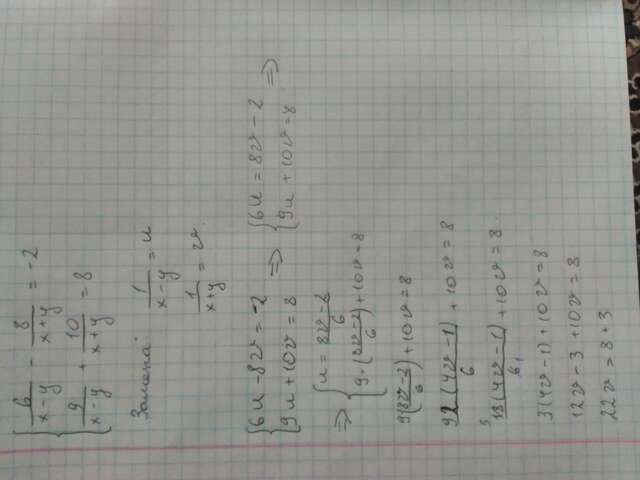 { 6/(x-y) - 8/(x+y) = -2
{ 9/(x-y) + 10/(x+y) = 8
Замена: 1/(x-y) = u
1/(x+y) = v.
{ 6u - 8v = -2 ⇒ { 6u = 8v - 2 ⇒
{ 9u + 10v = 8 { 9u + 10v = 8
⇒ { u = (8v-2)/6
{ 9·(8v-2)/6 + 10v = 8
9(8v-2)/6 + 10v = 8
9·2(4v-1)/6 + 10v = 8
18(4v-1)/6 + 10v = 8.
3(4v-1) + 10v = 8
12v - 3 + 10v = 8
22v = 8 + 3